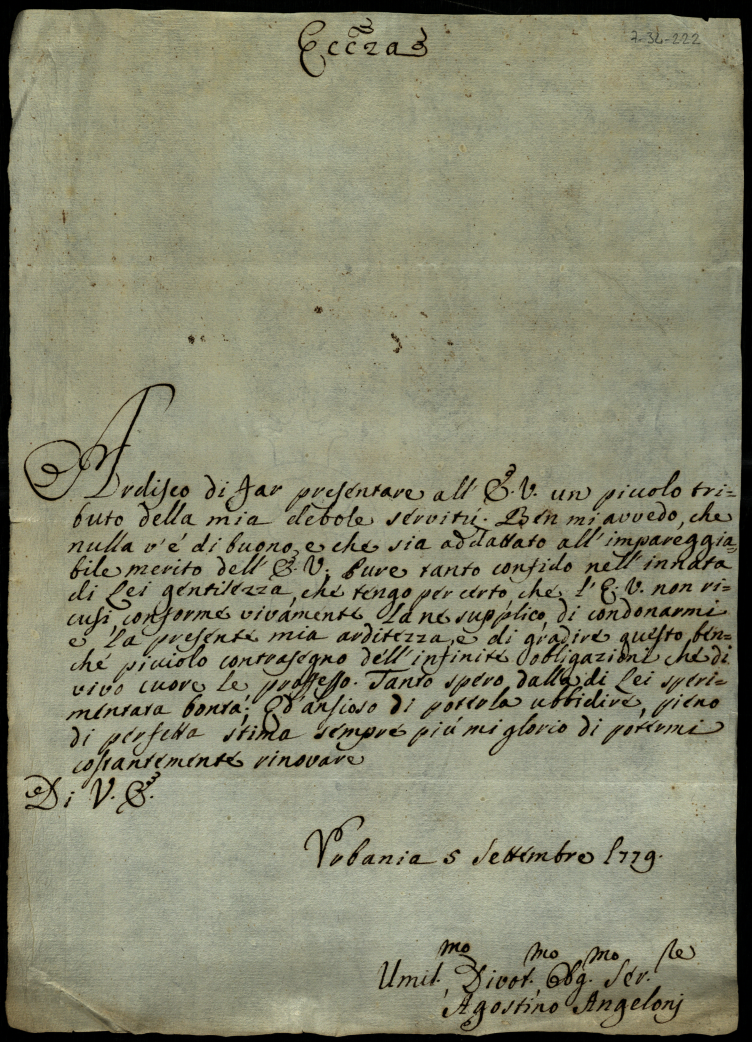 Eccza
7-34-222
Ardisco di far presentare all' E. V. un picolo tri=
buto della mia debole servitú. Ben mi avvedo, che
nulla v'é di buono, e che sia addattato all' impareggia=
bile merito dell' E. V.; Pure tanto confido nell' innata
di Lei gentilezza, che tengo per certo, che l' E. V. non ri=
cusi, conforme vivamente La ne supplico, di condonarmi
e la presente mia arditezza, e di gradire questo, ben=
ché picciolo contrasegno dell' infinite obligazioni che di
vivo cuore le professo. Tanto spero dalla di Lei speri=
mentata bontá; Ed ansioso di poterla ubbidire, pieno
di perfetta stima sempre piú mi glorio di potermi
costantemente rinovare
Di V. E.
Urbania 5 Settembre 1779.
Umil.mo Divot.mo Obg.mo Ser.re
Agostino Angelonj